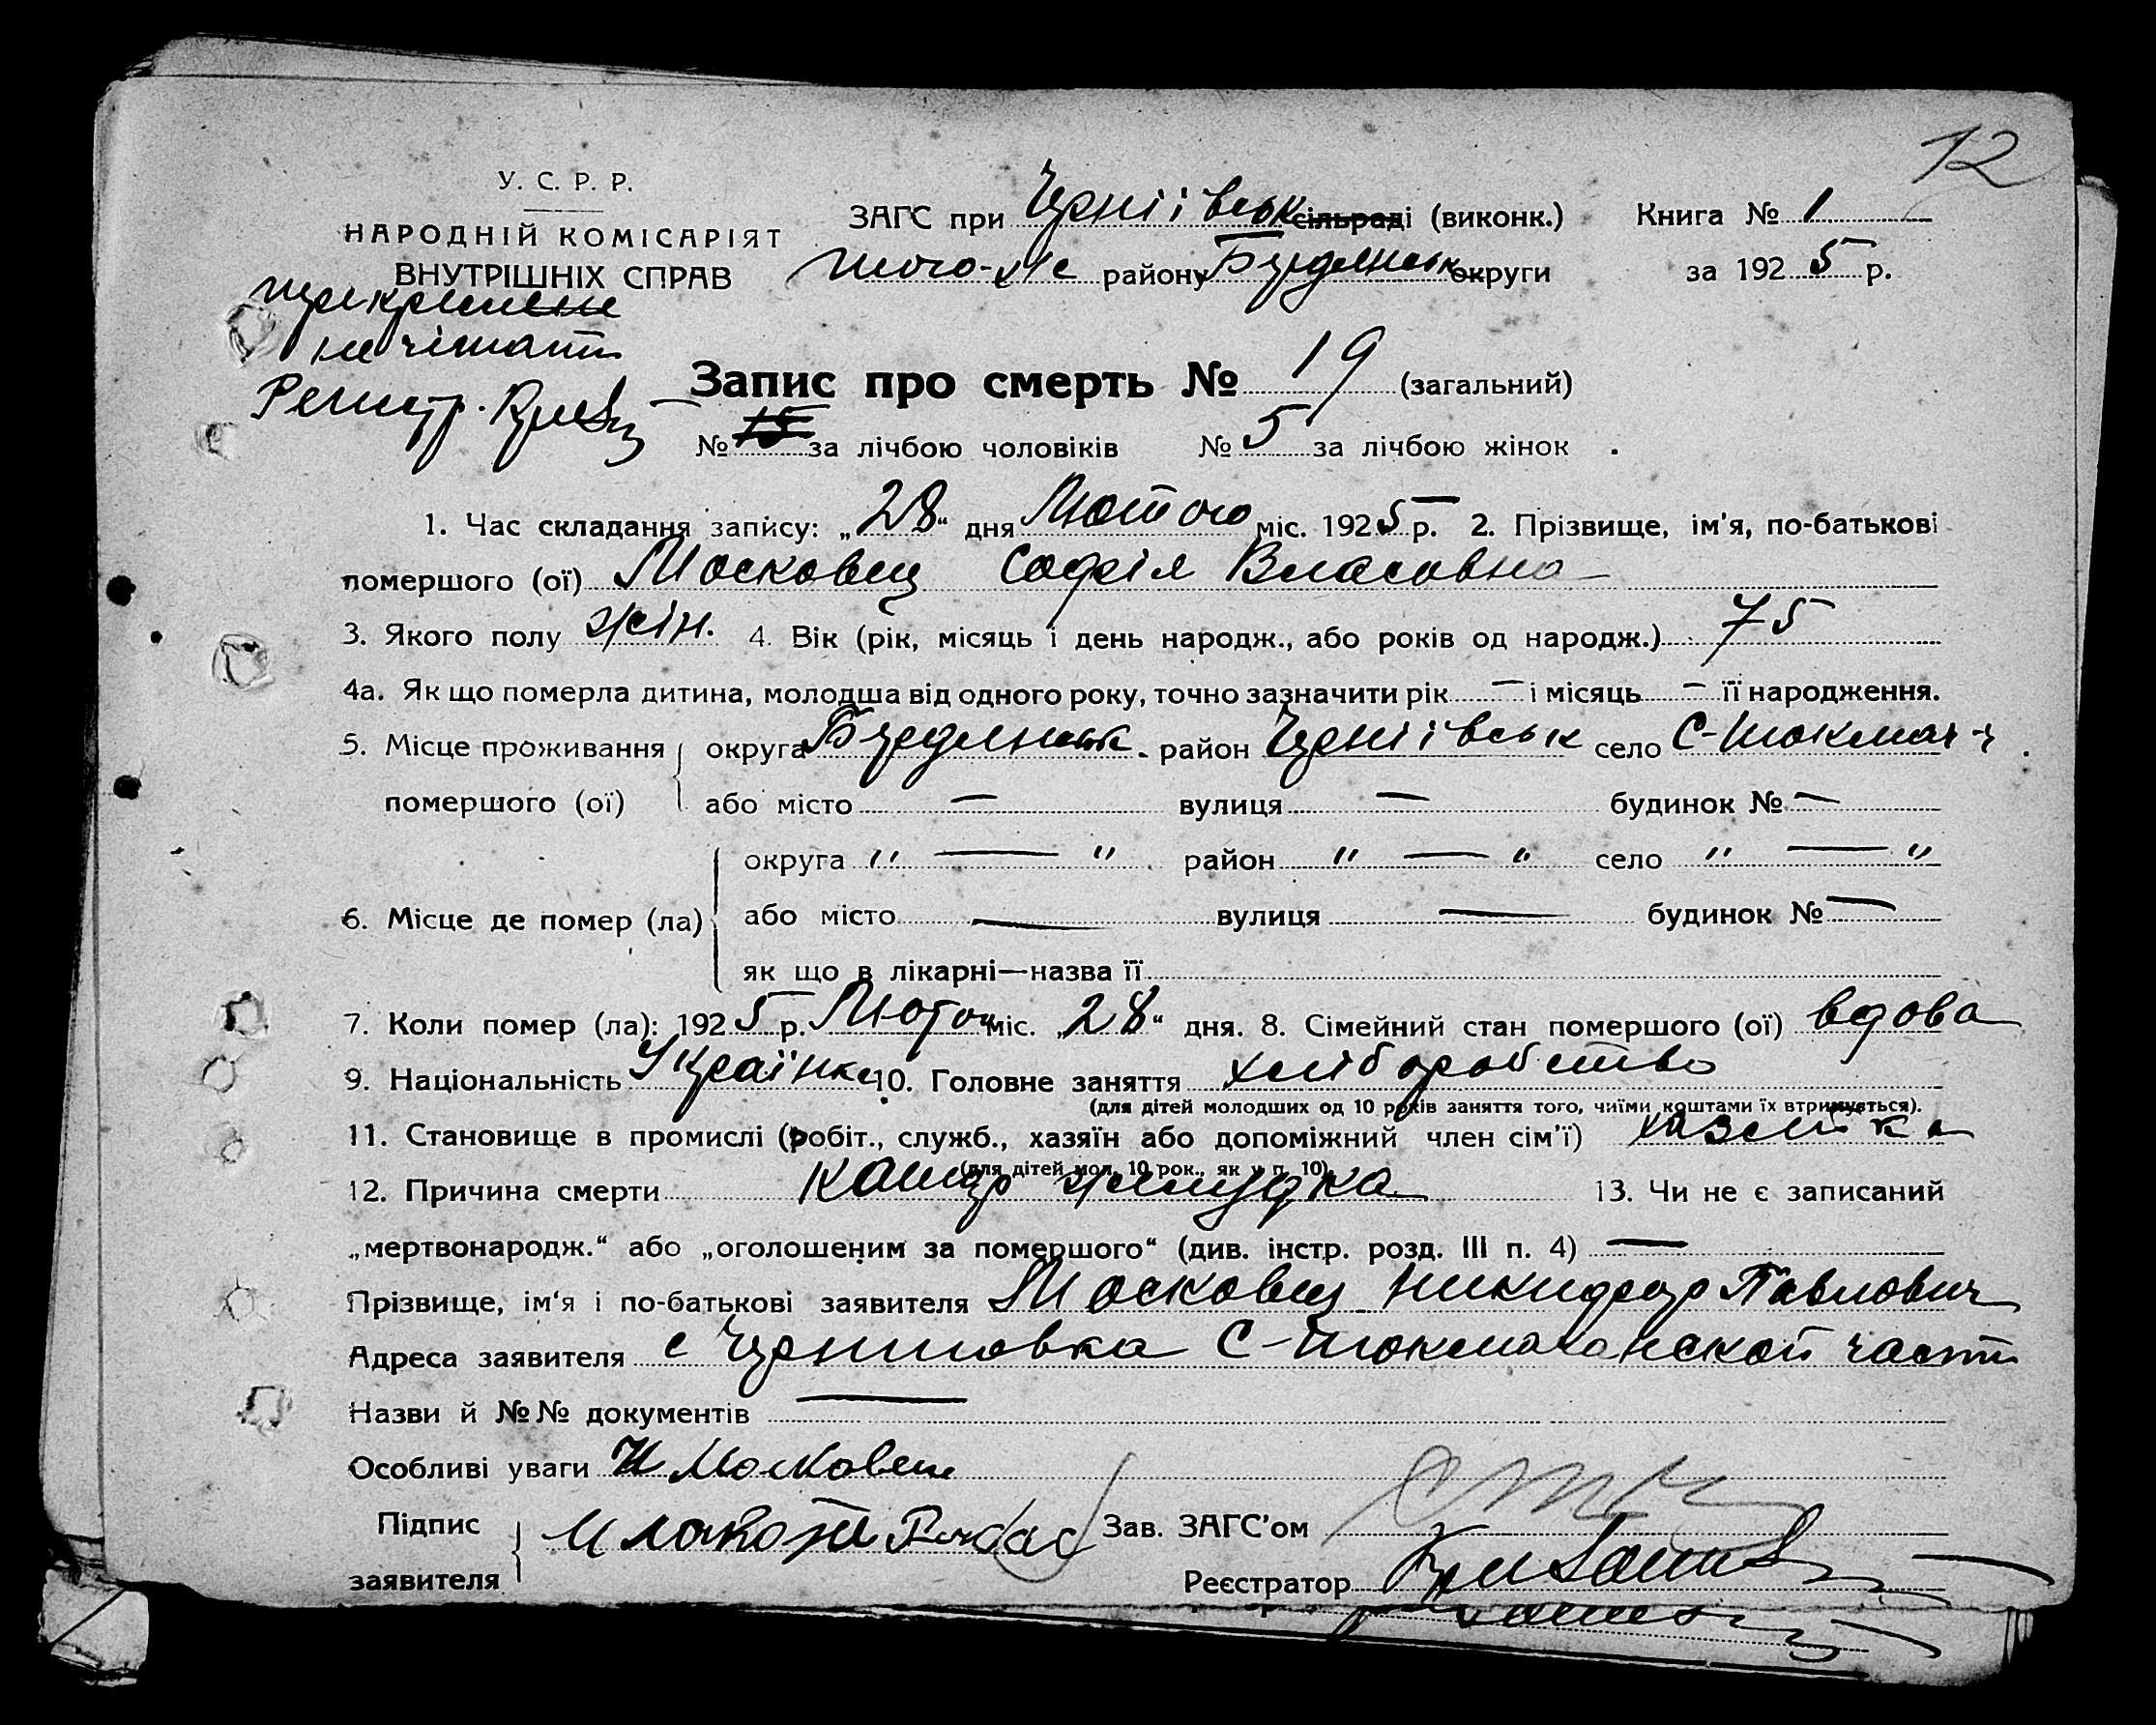 12
У. С. Р. Р.
НАРОДНІЙ КОМІСАРІЯТ
ВНУТРІШНІХ СПРАВ
ЗАГС при Черніївськ сільраді (виконк.) Книга № 1
того-же району Бердянськ округи за 1925 р.
не чітати
Регистр.
Запис про смерть № 19 (загальний)
№ 15 за лічбою чоловіків № 5 за лічбою жінок
1. Час складання запису: „28“ дня Лютого міс. 1925 р. 2. Прізвище, ім'я, по-батькові
помершого (ої) Московец Софія Власовна
3. Якого полу жін. 4. Вік (рік, місяць і день народж., або років од народж.) 75
4а. Як що померла дитина, молодша від одного року, точно зазначити рік — і місяць — її народження.
5. Місце проживання округа Бердянськ район Черніївськ село С-Токмач
помершого (ої) або місто — вулиця — будинок № —
округа " — " район " — " село " — "
6. Місце де помер (ла) або місто — вулиця — будинок № —
як що в лікарні—назва її
7. Коли помер (ла): 1925 р. Лютого міс. „28“ дня. 8. Сімейний стан помершого (ої) вдова
9. Національність Українка 10. Головне заняття хліборобство
(для дітей молодших од 10 років заняття того, чиїми коштами їх втримується).
11. Становище в промислі (робіт., служб., хазяїн або допоміжний член сім'ї) хазяйка
(для дітей мол. 10 рок., як у п. 10)
12. Причина смерти желудка 13. Чи не є записаний
„мертвонародж.“ або „оголошеним за помершого“ (див. інстр. розд. III п. 4) —
Прізвище, ім'я і по-батькові заявителя Московец Никифор Павлович
Адреса заявителя с Черниговка С-Токмачанской части
Назви й №№ документів —
Особливі уваги Н Московец
Підпис
заявителя
Зав. ЗАГС'ом
Реєстратор